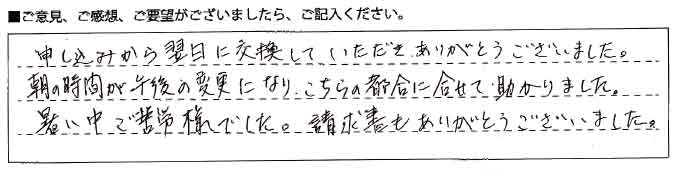 ■ご意見、ご感想、ご要望がございましたら、ご記入ください。
申し込みから翌日に交換して、いただき、ありがとうございました。
朝の時間が午後の変更になり、こちらの都合に合せて助かりました。
暑い中ご苦労様でした。請求書もありがとうございました。